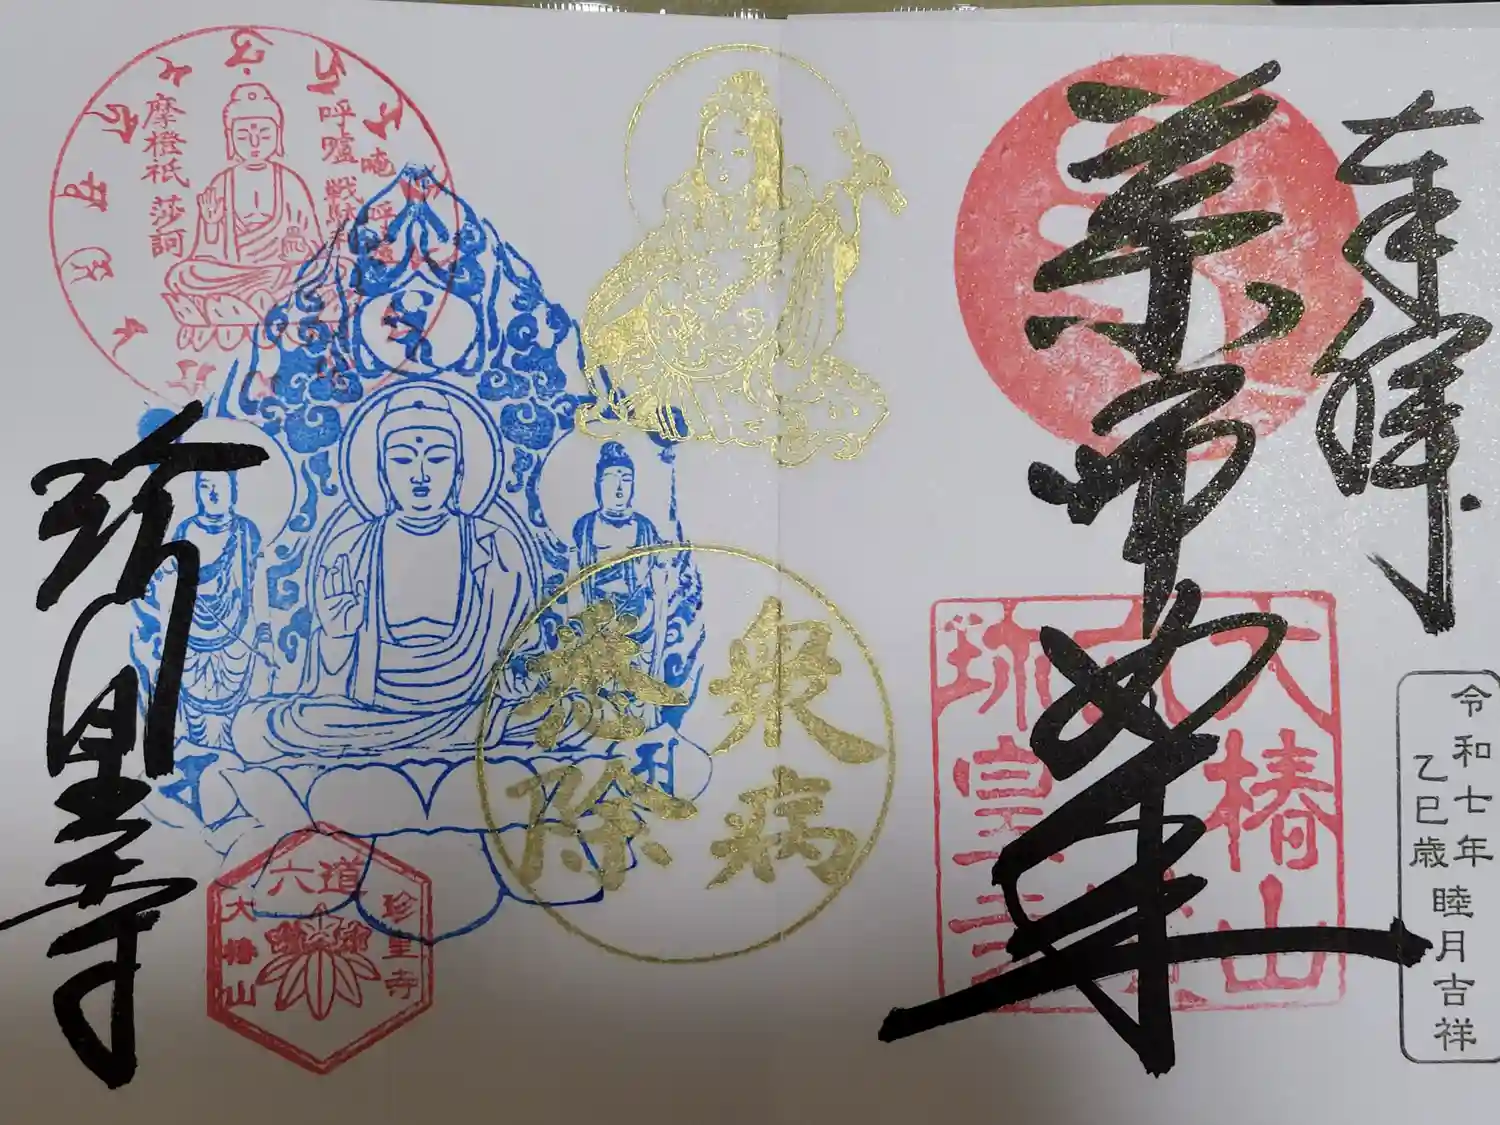 奉拝
薬師如来
大椿山
令和七年
乙巳歳
睦月吉祥
衆病
悉除
呼嚧
戦駄
摩橙祇
莎訶
唵
六道
珍皇寺
大椿山
珍皇寺